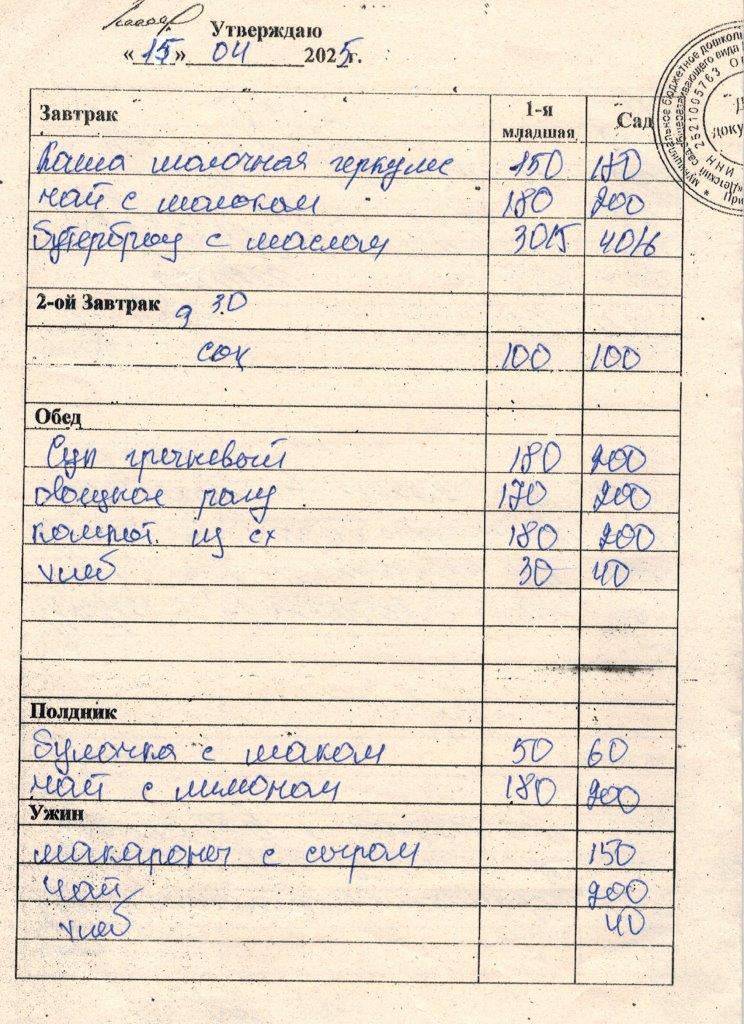 Утверждаю
«15» 04 2025г.
Завтрак 1-я младшая Сад
Каша молочная геркулес 150 180
чай с молоком 180 200
бутерброд с маслом 30/5 40/6
2-ой Завтрак 9 30
сок 100 100
Обед
Суп гречневый 180 200
овощное рагу 170 200
компот из сх 180 200
хлеб 30 40
Полдник
булочка с маком 50 60
чай с лимоном 180 200
Ужин
макароны с сыром 150
чай 200
хлеб 40